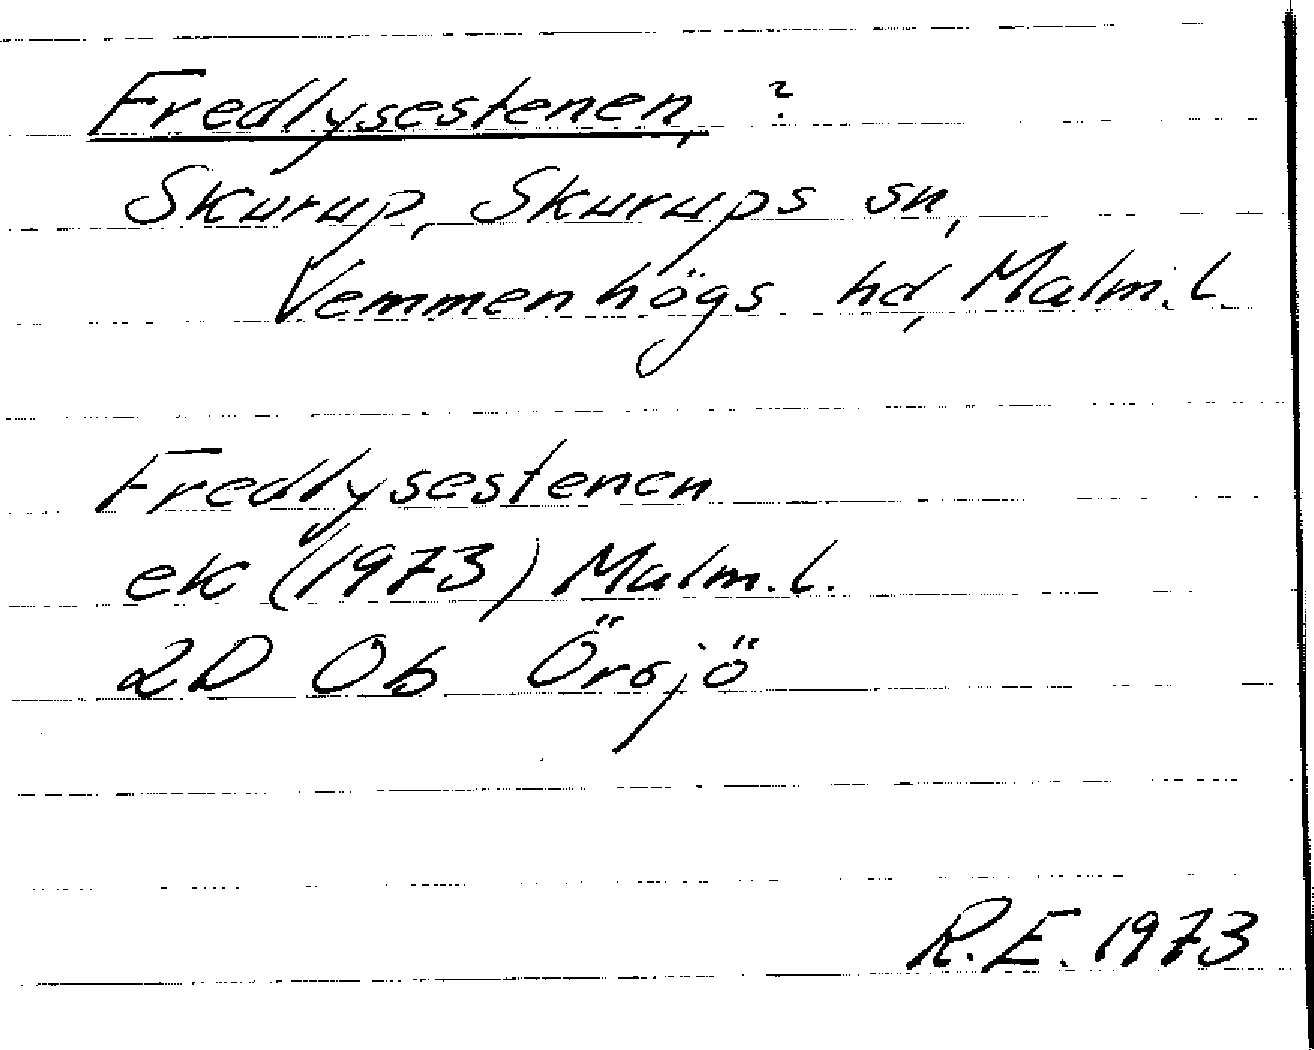 Fredlysestenen, ?
Skurup, Skurups sn,
Vemmenhögs hd, Malm.l.
Fredlysestenen
ek (1973) Malm.l.
2D Ob Örsjö
R.E. 1973